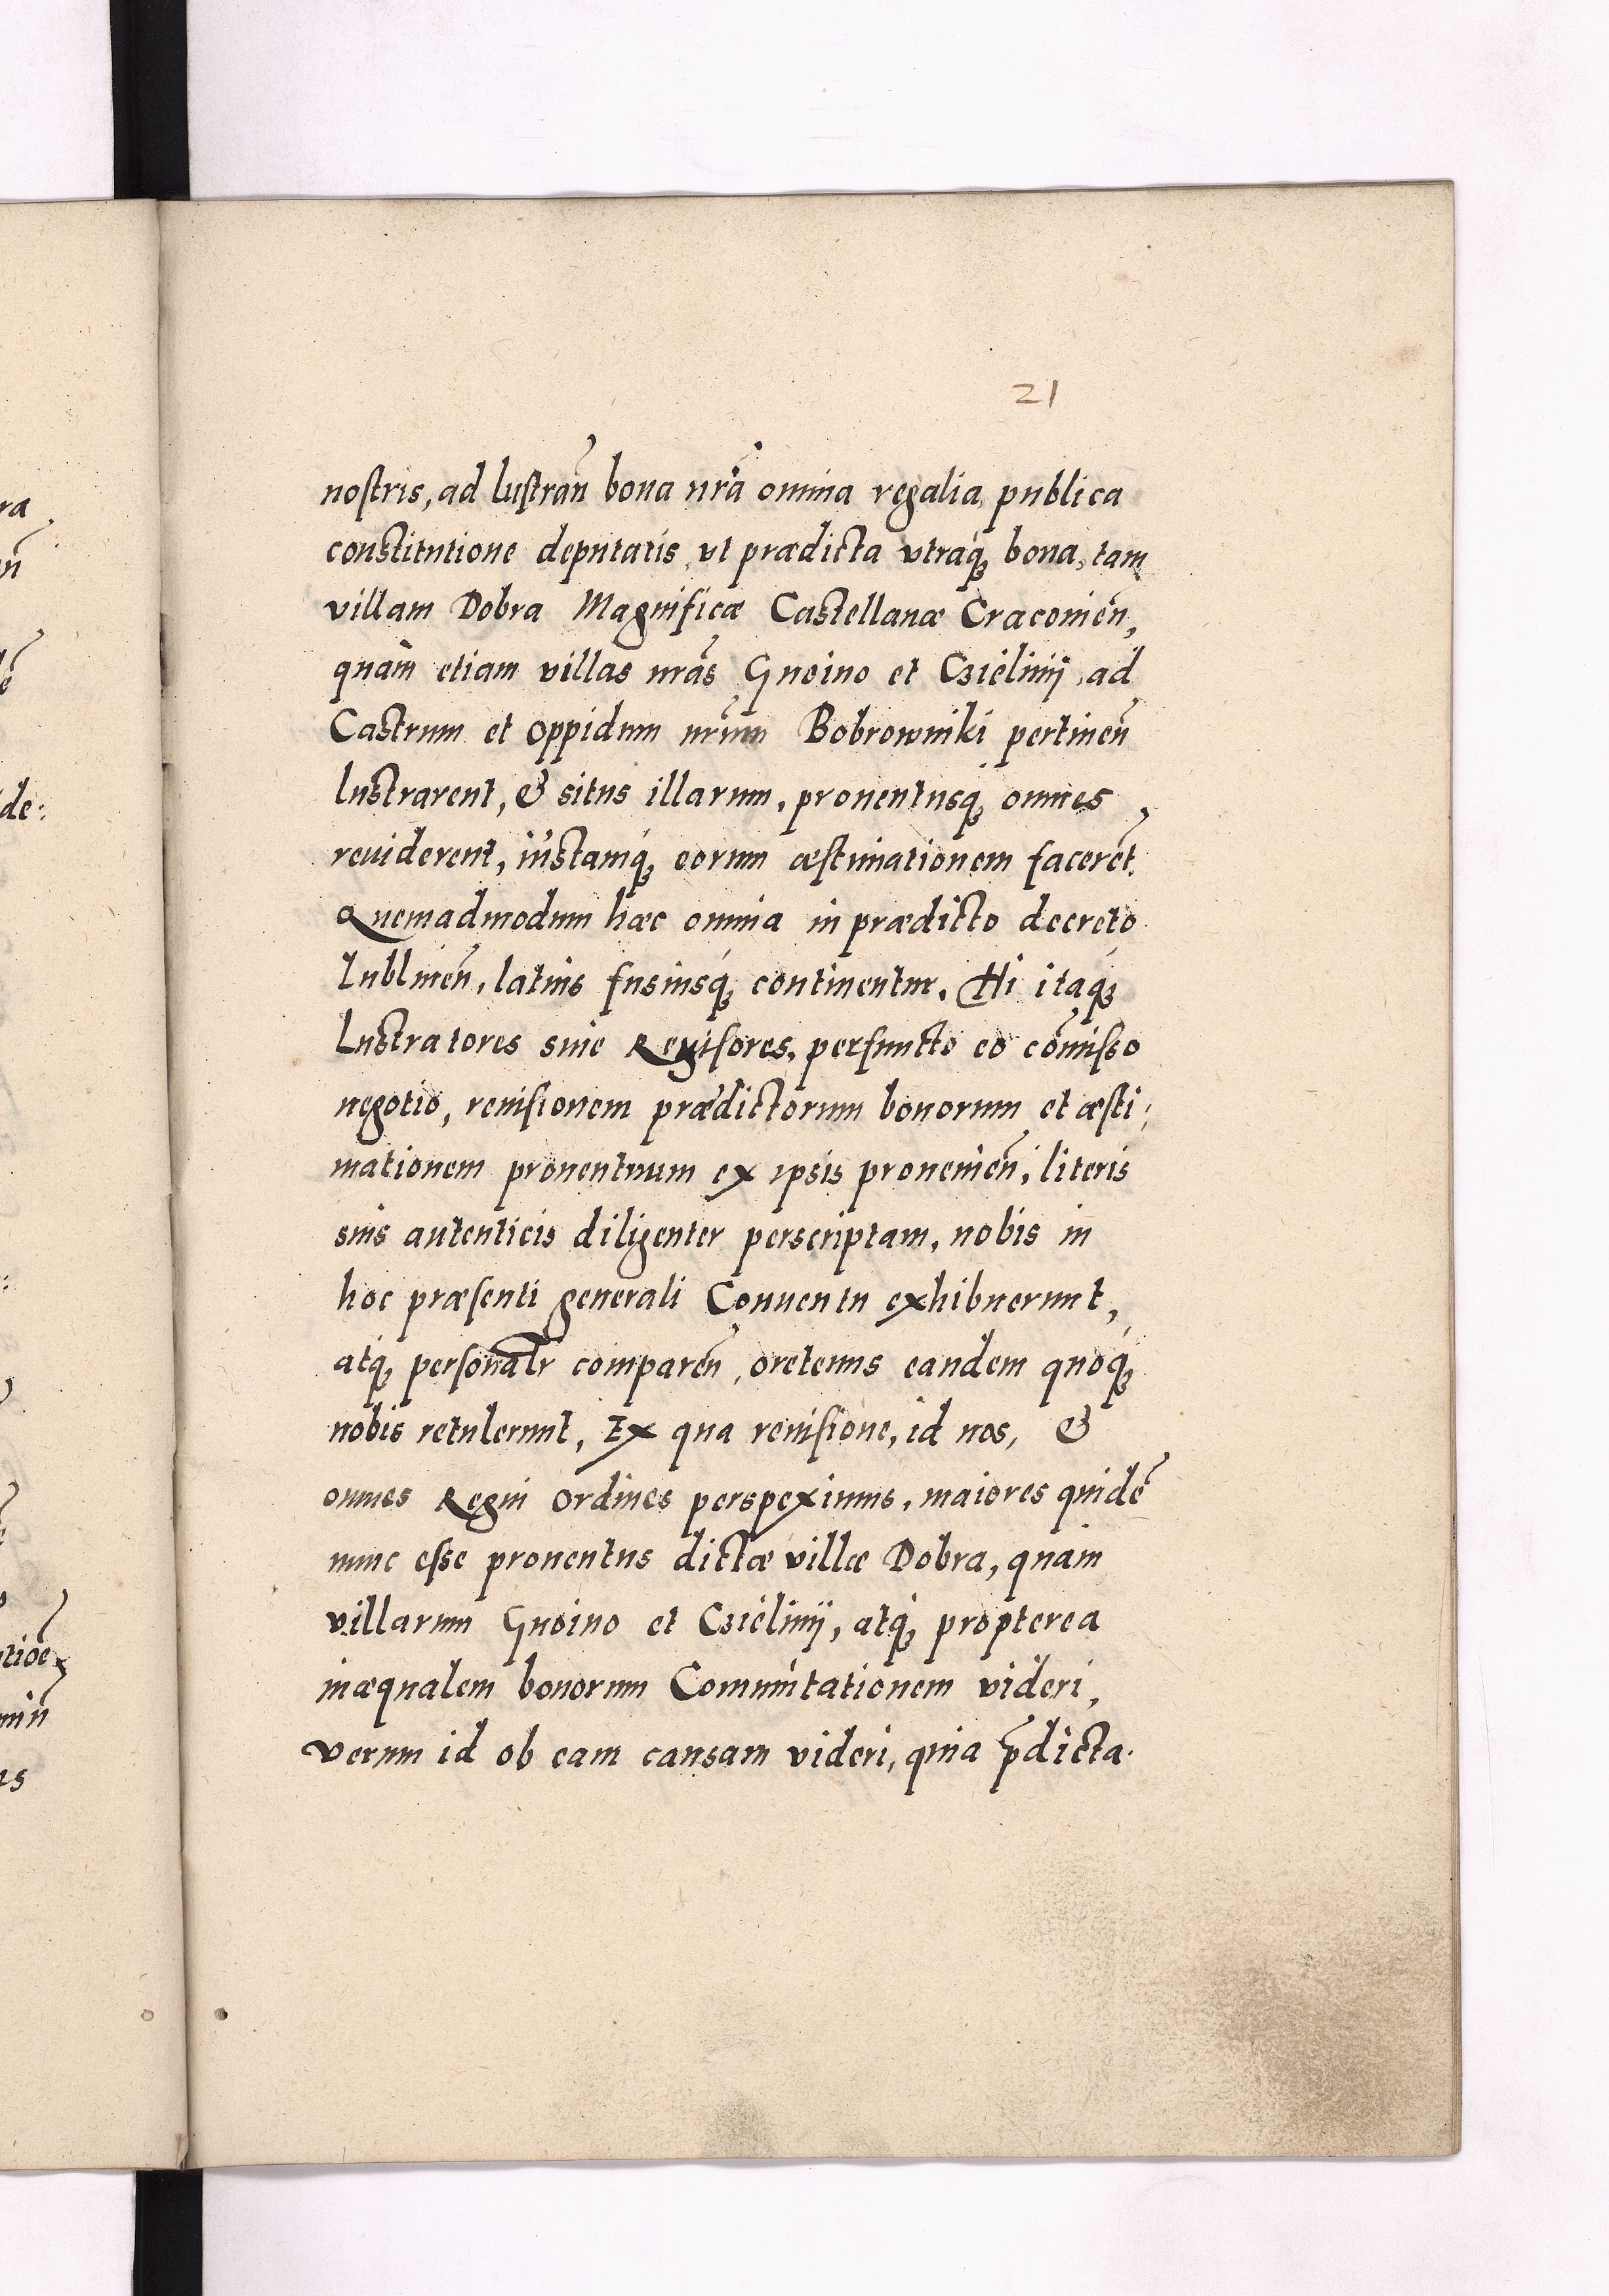 21
nostris, ad lustran̄ bona nr̄a omnia regalia publica
constitutione deputatis, vt prædicta vtraq́ꝫ bona, tam
villam Dobra Magnificæ Castellanæ Cracouien̄,
quàm etiam villas nr̄as Gnoino et Czielinij, ad
Castrum et oppidum nr̄um Bobrowniki pertinen̄
lustrarent, & situs illarum, prouentusq́ꝫ omnes
reuiderent, iustamq́ꝫ eorum æstimationem facerēt.
Quemadmodum hæc omnia in prædicto decreto
Lublinen̄, latius fusiusq́ꝫ continentur. Hi itaq́ꝫ
Lustratores siue Reuisores, perfuncto eo com̄isso
negotio, reuisionem prædictorum bonorum et æsti:
mationem prouentuum ex ipsis prouenien̄, literis
suis autenticis diligenter perscriptam, nobis in
hoc præsenti generali Conuentu exhibuerunt,
atq́ꝫ personalr̄ comparen̄, oretenus eandem quoq́ꝫ
nobis retulerunt, Ex qua reuisione, id nos, &
omnes Regni ordines perspeximus, maiores quidē
nunc esse prouentus dictæ villæ Dobra, quàm
villarum Gnoino et Czielinij, atq́ꝫ propterea
inæqualem bonorum Commutationem videri,
verum id ob eam causam videri, quia p̄dicta